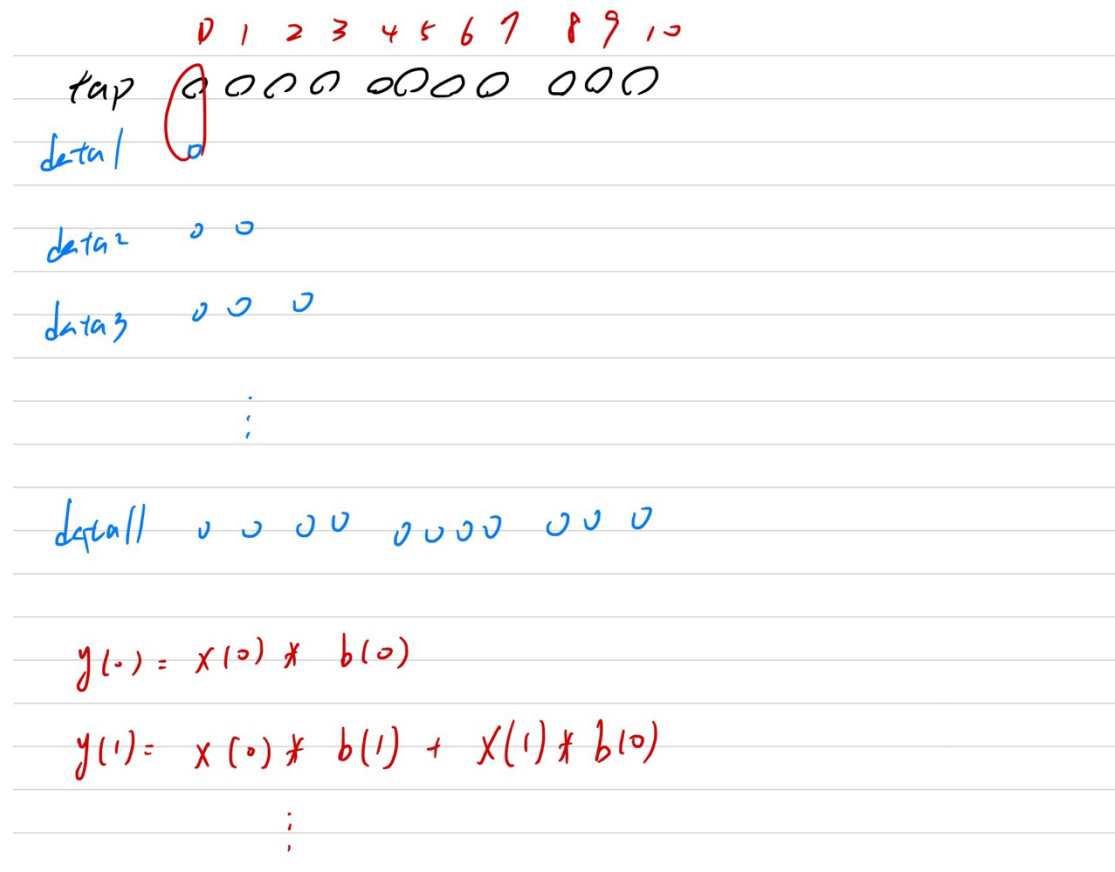 0 1 2 3 4 5 6 7 8 9 10
tap 0 0 0 0 0 0 0 0 0 0 0
data1 0
data2 0 0
data3 0 0 0
⋮
data11 0 0 0 0 0 0 0 0 0 0 0
y(0) = x(0) * b(0)
y(1) = x(0) * b(1) + x(1) * b(0)
⋮